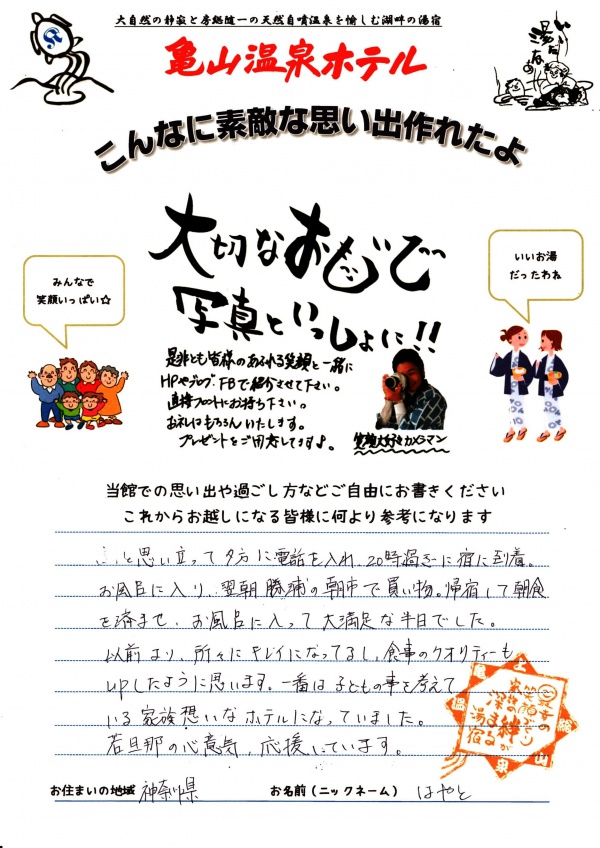 大自然の静寂と房総随一の天然自噴温泉を愉しむ湖畔の湯宿
亀山温泉ホテル
いい湯だなあ
こんなに素敵な思い出作れたよ
大切なおもいで
写真といっしょに!!
みんなで
笑顔いっぱい☆
いいお湯
だったわね
是非とも皆様のあふれる笑顔と一緒に
HPやブログ、FBで紹介させて下さい。
直接フロントにお持ち下さい。
お礼はもちろんいたします。
プレゼントをご用意してます♪。
笑顔大好きカメラマン
当館での思い出や過ごし方などご自由にお書きください
これからお越しになる皆様に何より参考になります
ふと思い立って夕方に電話を入れ、20時過ぎに宿に到着。
お風呂に入り、翌朝勝浦の朝市で買い物。帰宿して朝食
を済ませ、お風呂に入って大満足な半日でした。
以前より、所々にキレイになってるし、食事のクオリティーも
upしたように思います。一番は子どもの事を考えて
いる家族想いなホテルになっていました。
若旦那の心意気、応援しています。
お住まいの地域 神奈川県
お名前（ニックネーム） はやと